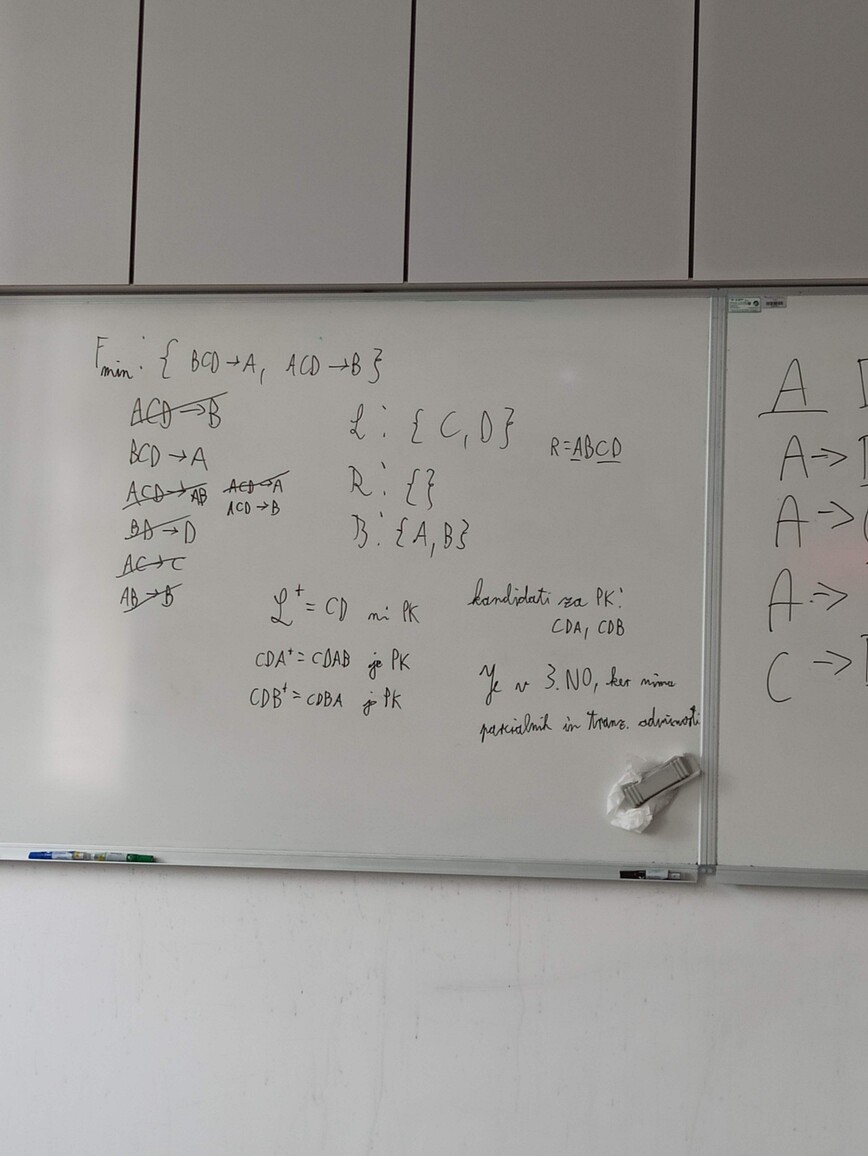 Fmin: { BCD → A, ACD → B }
ACD → B
BCD → A
ACD → AB ACD → A
ACD → B
BD → D
AC → C
AB → B
L: { C, D }
R: { }
B: { A, B }
R = ABCD
L⁺ = CD ni PK
CDA⁺ = CDAB je PK
CDB⁺ = CDBA je PK
kandidati za PK:
CDA, CDB
Je v 3.NO, ker nima
parcialnih in tranz. odvisnosti
A
A ->
A ->
A ->
C ->